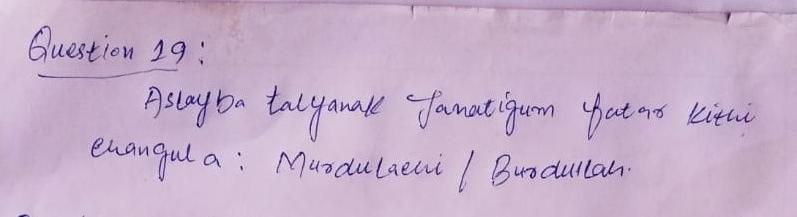 Question 19:
Aslayba talyanak Janatigum fatar Kithi
enangula: Murdulaeni / Burdullah.